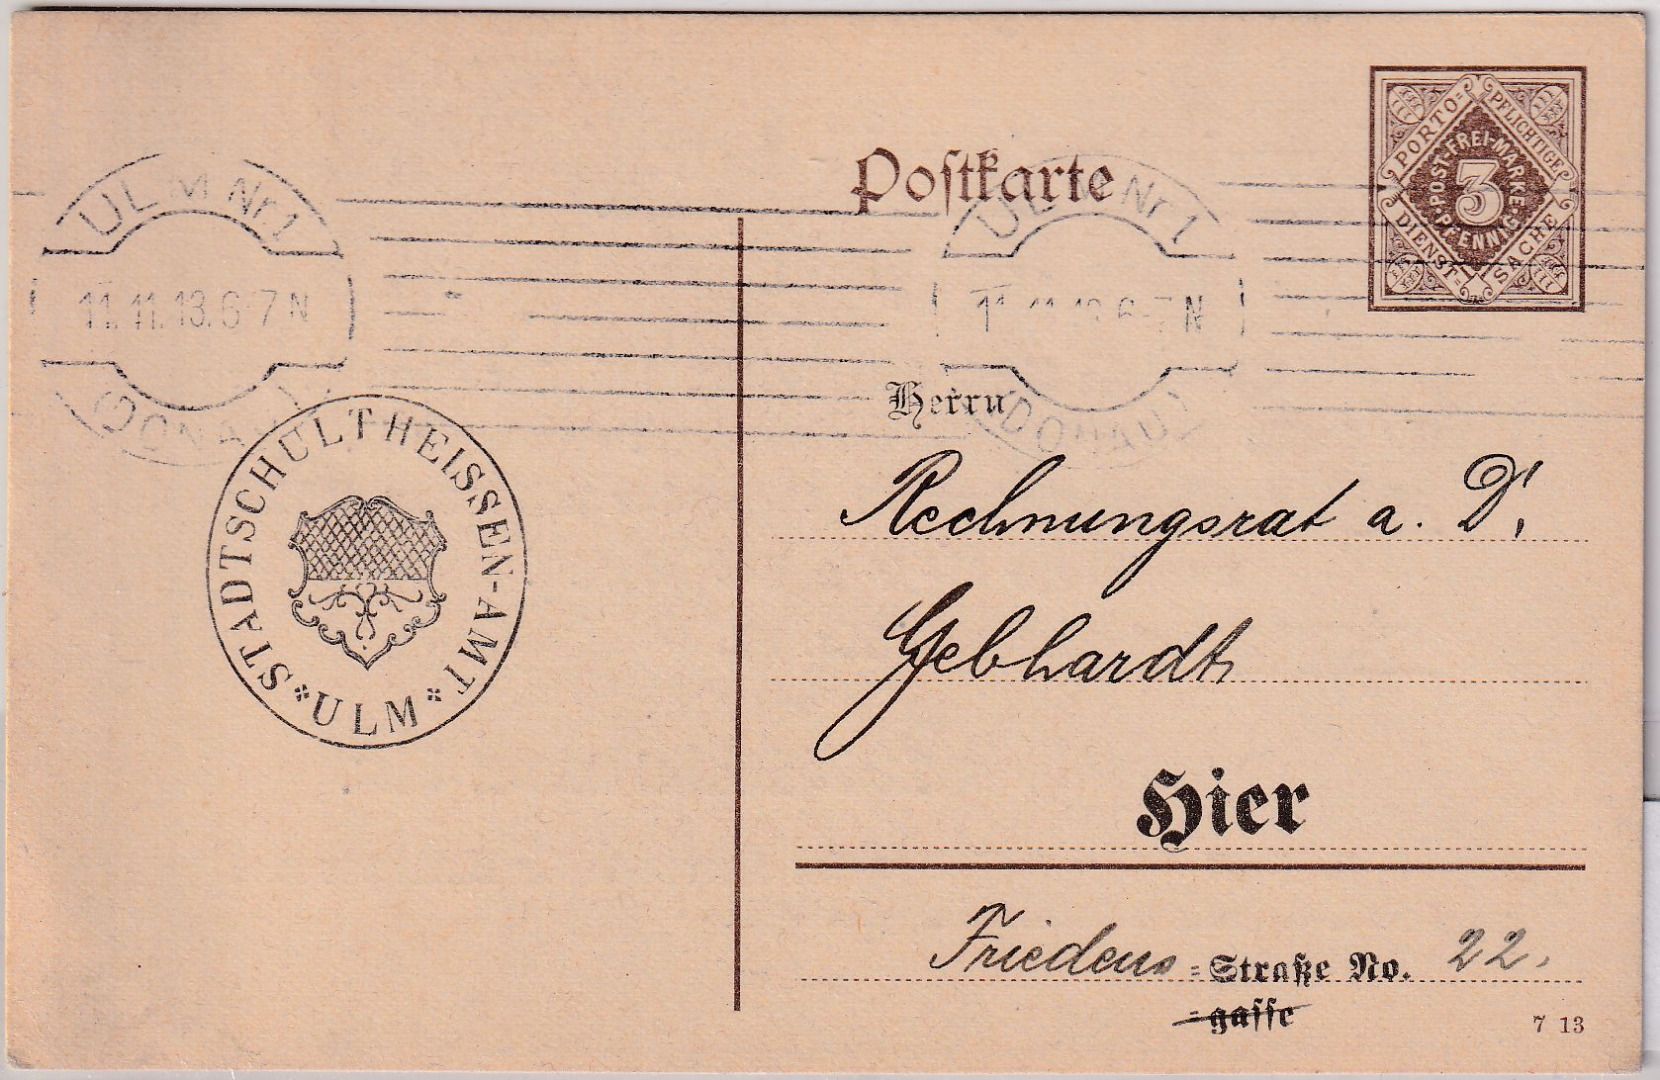 Postkarte
PORTO=
PFLICHTIGE
DIENST=
SACHE
POST-FREI-MARKE
3
PFENNIG
ULM Nr 1
11.11.13. 6-7 N
DONAU
ULM Nr 1
11.11.13 6-7 N
(DONAU)
STADTSCHULTHEISSEN-AMT
ULM
Herrn
Rechnungsrat a. D.
Gebhardt
Hier
Friedens =Straße No. 22.
=gasse
7 13